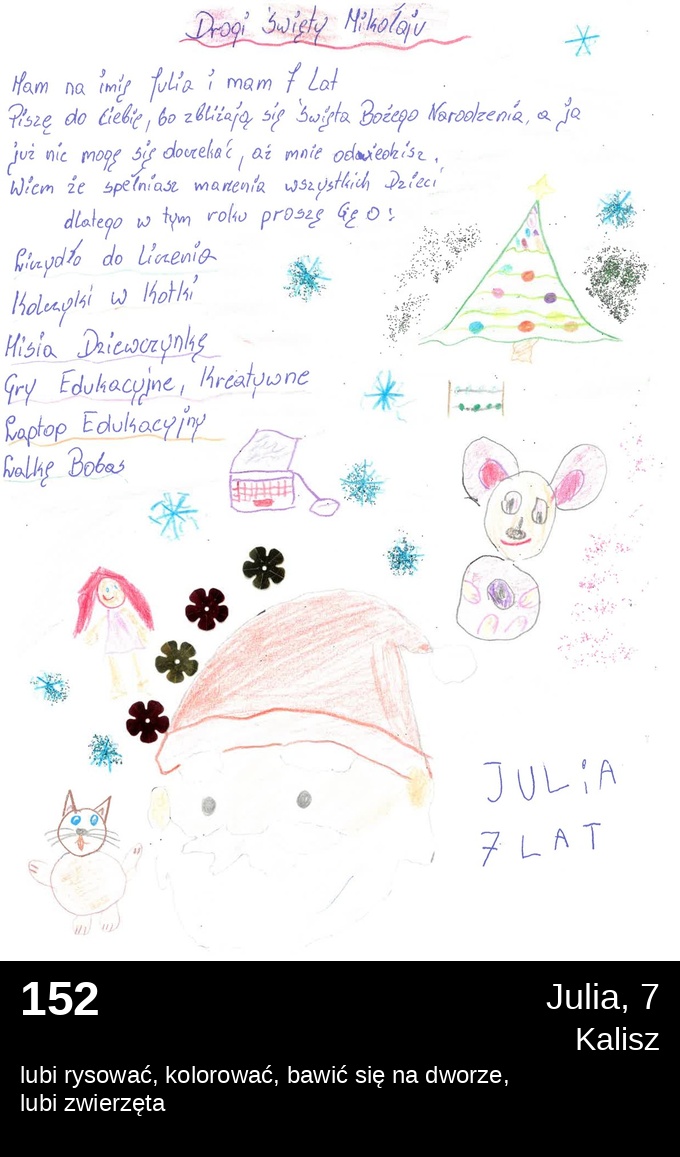 Drogi Święty Mikołaju
Mam na imię Julia i mam 7 Lat
Piszę do Ciebię, bo zbliżają się Święta Bożego Narodzenia, a ja
już nie mogę się doczekać, aż mnie odwiedzisz.
Wiem że spełniasz marzenia wszystkich Dzieci
dlatego w tym roku proszę Cię o:
Liczydło do Liczenia
Kolczyki w Kotki
Misia Dziewczynkę
Gry Edukacyjne, Kreatywne
Laptop Edukacyjny
Lalkę Bobas
JULiA
7 LAT
152
Julia, 7
Kalisz
lubi rysować, kolorować, bawić się na dworze,
lubi zwierzęta